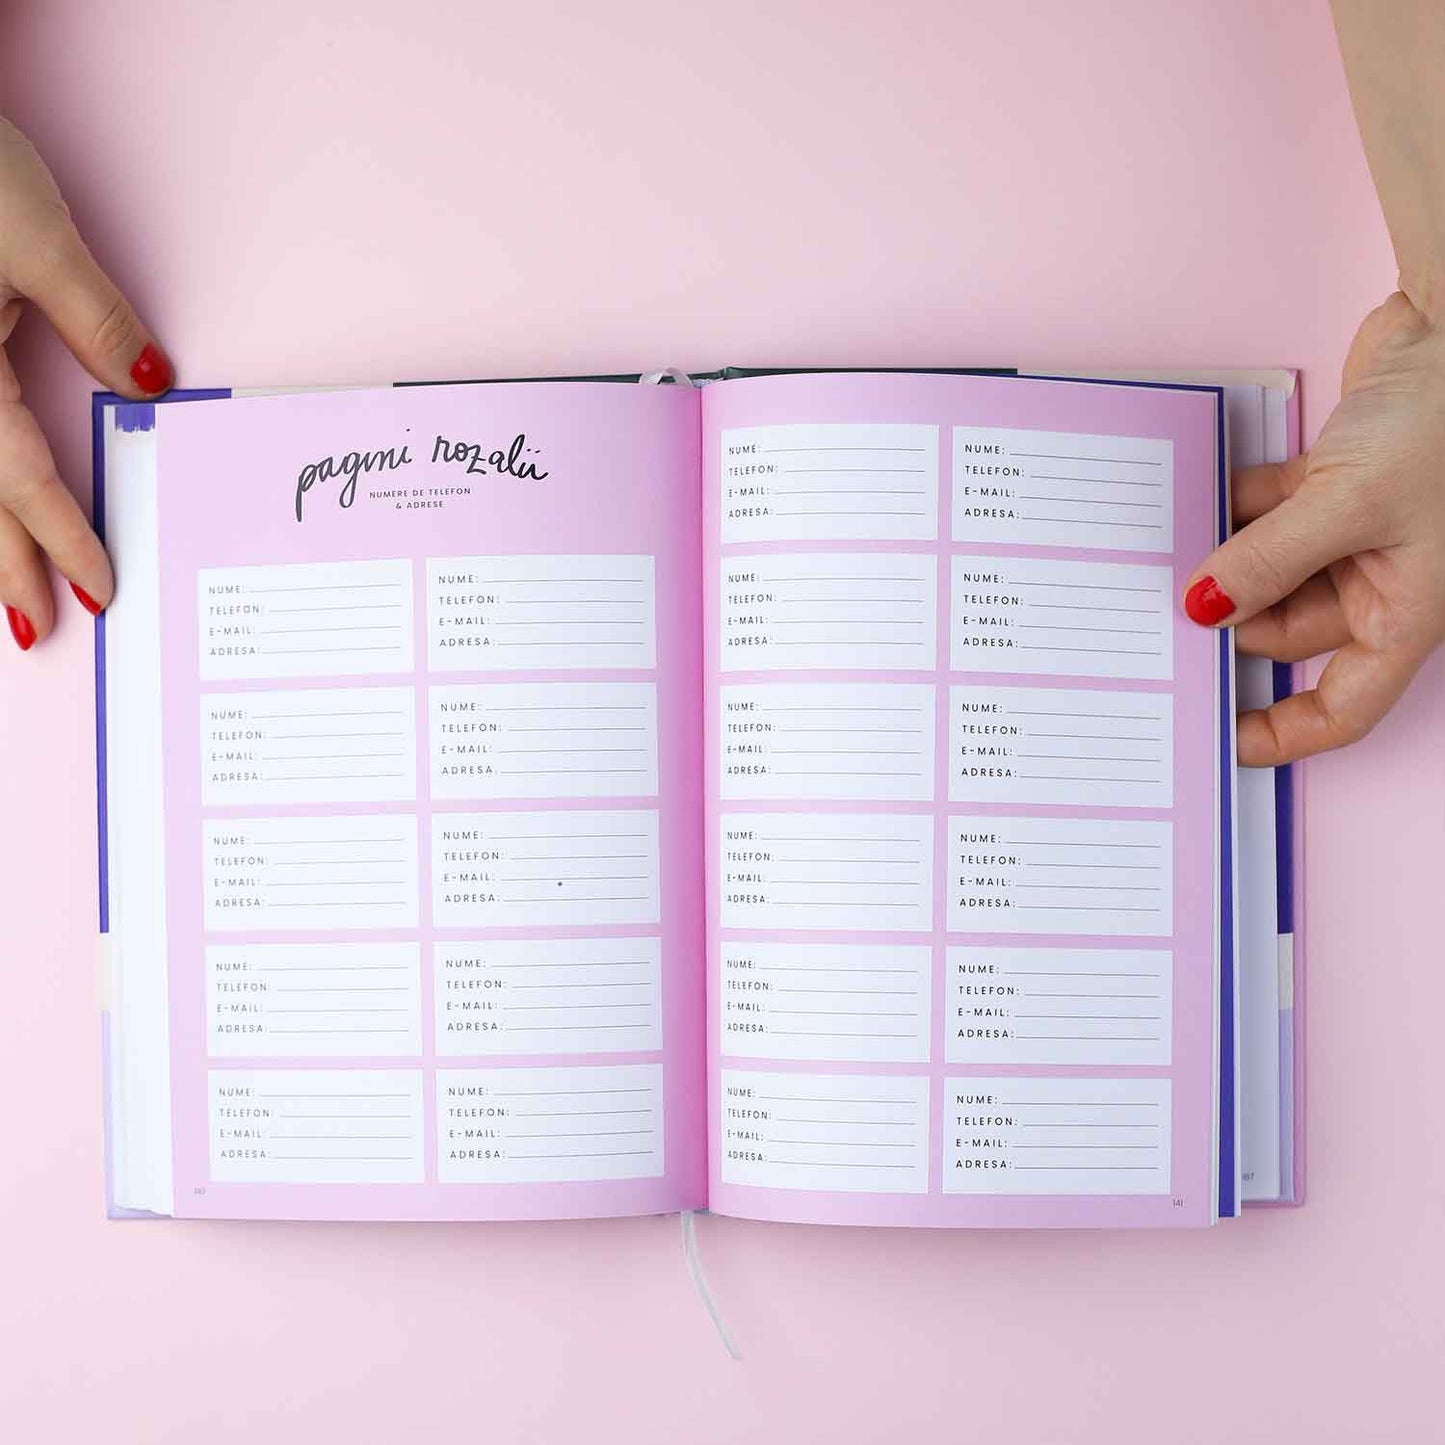 pagini rozalii
NUMERE DE TELEFON
& ADRESE
NUME:
TELEFON:
E-MAIL:
ADRESA:
NUME:
TELEFON:
E-MAIL:
ADRESA:
NUME:
TELEFON:
E-MAIL:
ADRESA:
NUME:
TELEFON:
E-MAIL:
ADRESA:
NUME:
TELEFON:
E-MAIL:
ADRESA:
NUME:
TELEFON:
E-MAIL:
ADRESA:
NUME:
TELEFON:
E-MAIL:
ADRESA:
NUME:
TELEFON:
E-MAIL:
ADRESA:
NUME:
TELEFON:
E-MAIL:
ADRESA:
NUME:
TELEFON:
E-MAIL:
ADRESA:
NUME:
TELEFON:
E-MAIL:
ADRESA:
NUME:
TELEFON:
E-MAIL:
ADRESA:
NUME:
TELEFON:
E-MAIL:
ADRESA:
NUME:
TELEFON:
E-MAIL:
ADRESA:
NUME:
TELEFON:
E-MAIL:
ADRESA:
NUME:
TELEFON:
E-MAIL:
ADRESA:
NUME:
TELEFON:
E-MAIL:
ADRESA:
NUME:
TELEFON:
E-MAIL:
ADRESA:
NUME:
TELEFON:
E-MAIL:
ADRESA:
NUME:
TELEFON:
E-MAIL:
ADRESA:
NUME:
TELEFON:
E-MAIL:
ADRESA:
NUME:
TELEFON:
E-MAIL:
ADRESA:
141